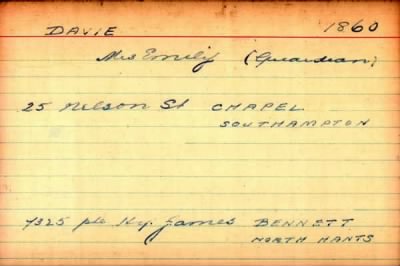 DAVIE 1860
Mrs Emily (Guardian)
25 Nelson St CHAPEL
SOUTHAMPTON
7325 pte Hy. James BENNETT
NORTH HANTS